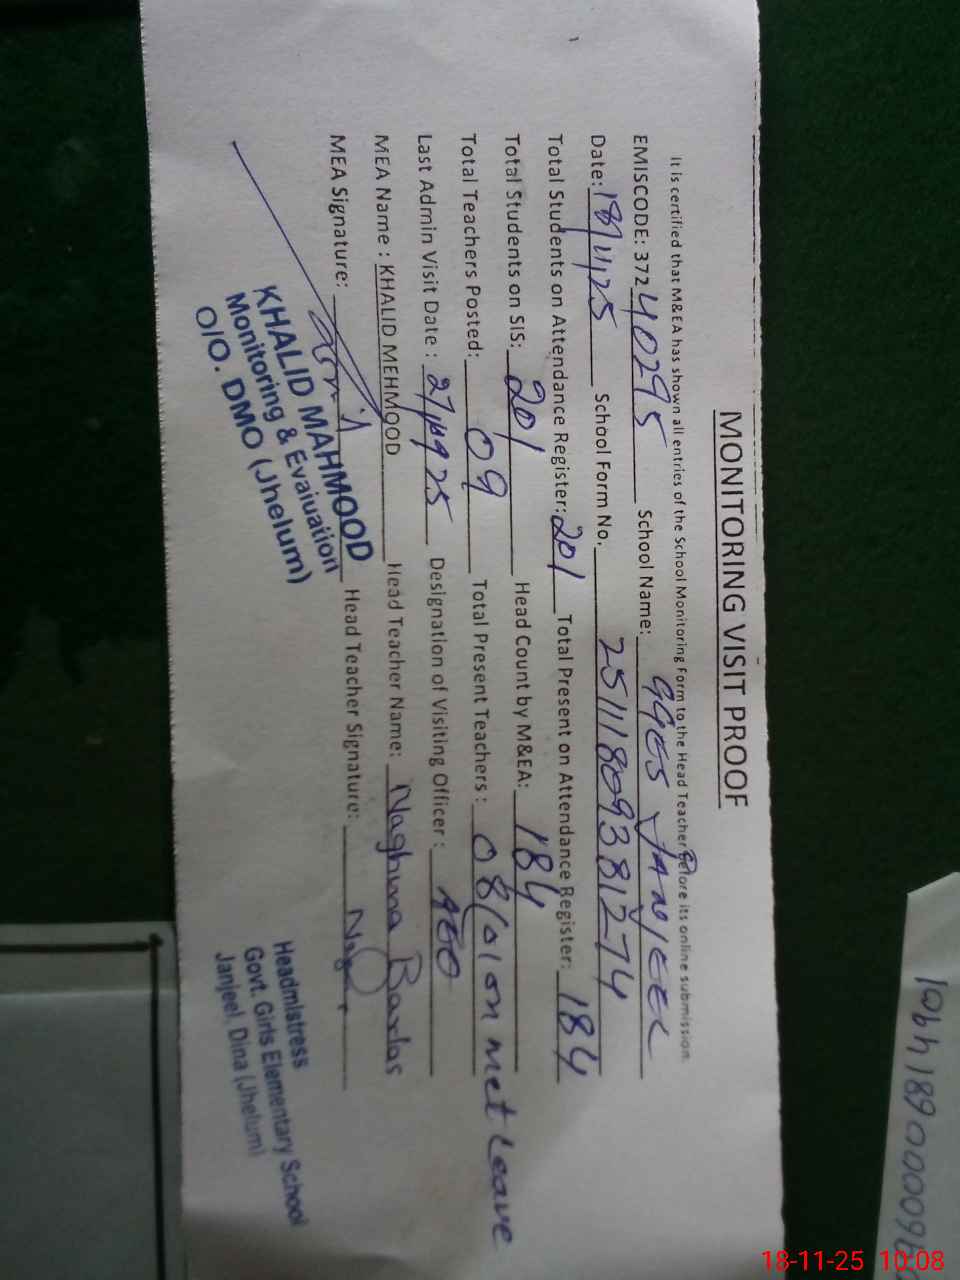 MONITORING VISIT PROOF
It is certified that M&EA has shown all entries of the School Monitoring Form to the Head Teacher before its online submission.
EMISCODE: 37240295 School Name: GGES JANJEEL
Date: 18/11/25 School Form No. 251118093812774
Total Students on Attendance Register: 201 Total Present on Attendance Register: 184
Total Students on SIS: 201 Head Count by M&EA: 184
Total Teachers Posted: 09 Total Present Teachers: 08/01 on met Leave
Last Admin Visit Date: Designation of Visiting Officer:
MEA Name : KHALID MEHMOOD Head Teacher Name: Naghma Barlas
MEA Signature: Head Teacher Signature:
KHALID MAHMOOD
Monitoring & Evaluation
O/O. DMO (Jhelum)
Headmistress
Govt. Girls Elementary School
Janjeel, Dina (Jhelum)
18-11-25 10:08